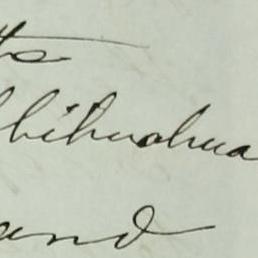 Chihuahua
and